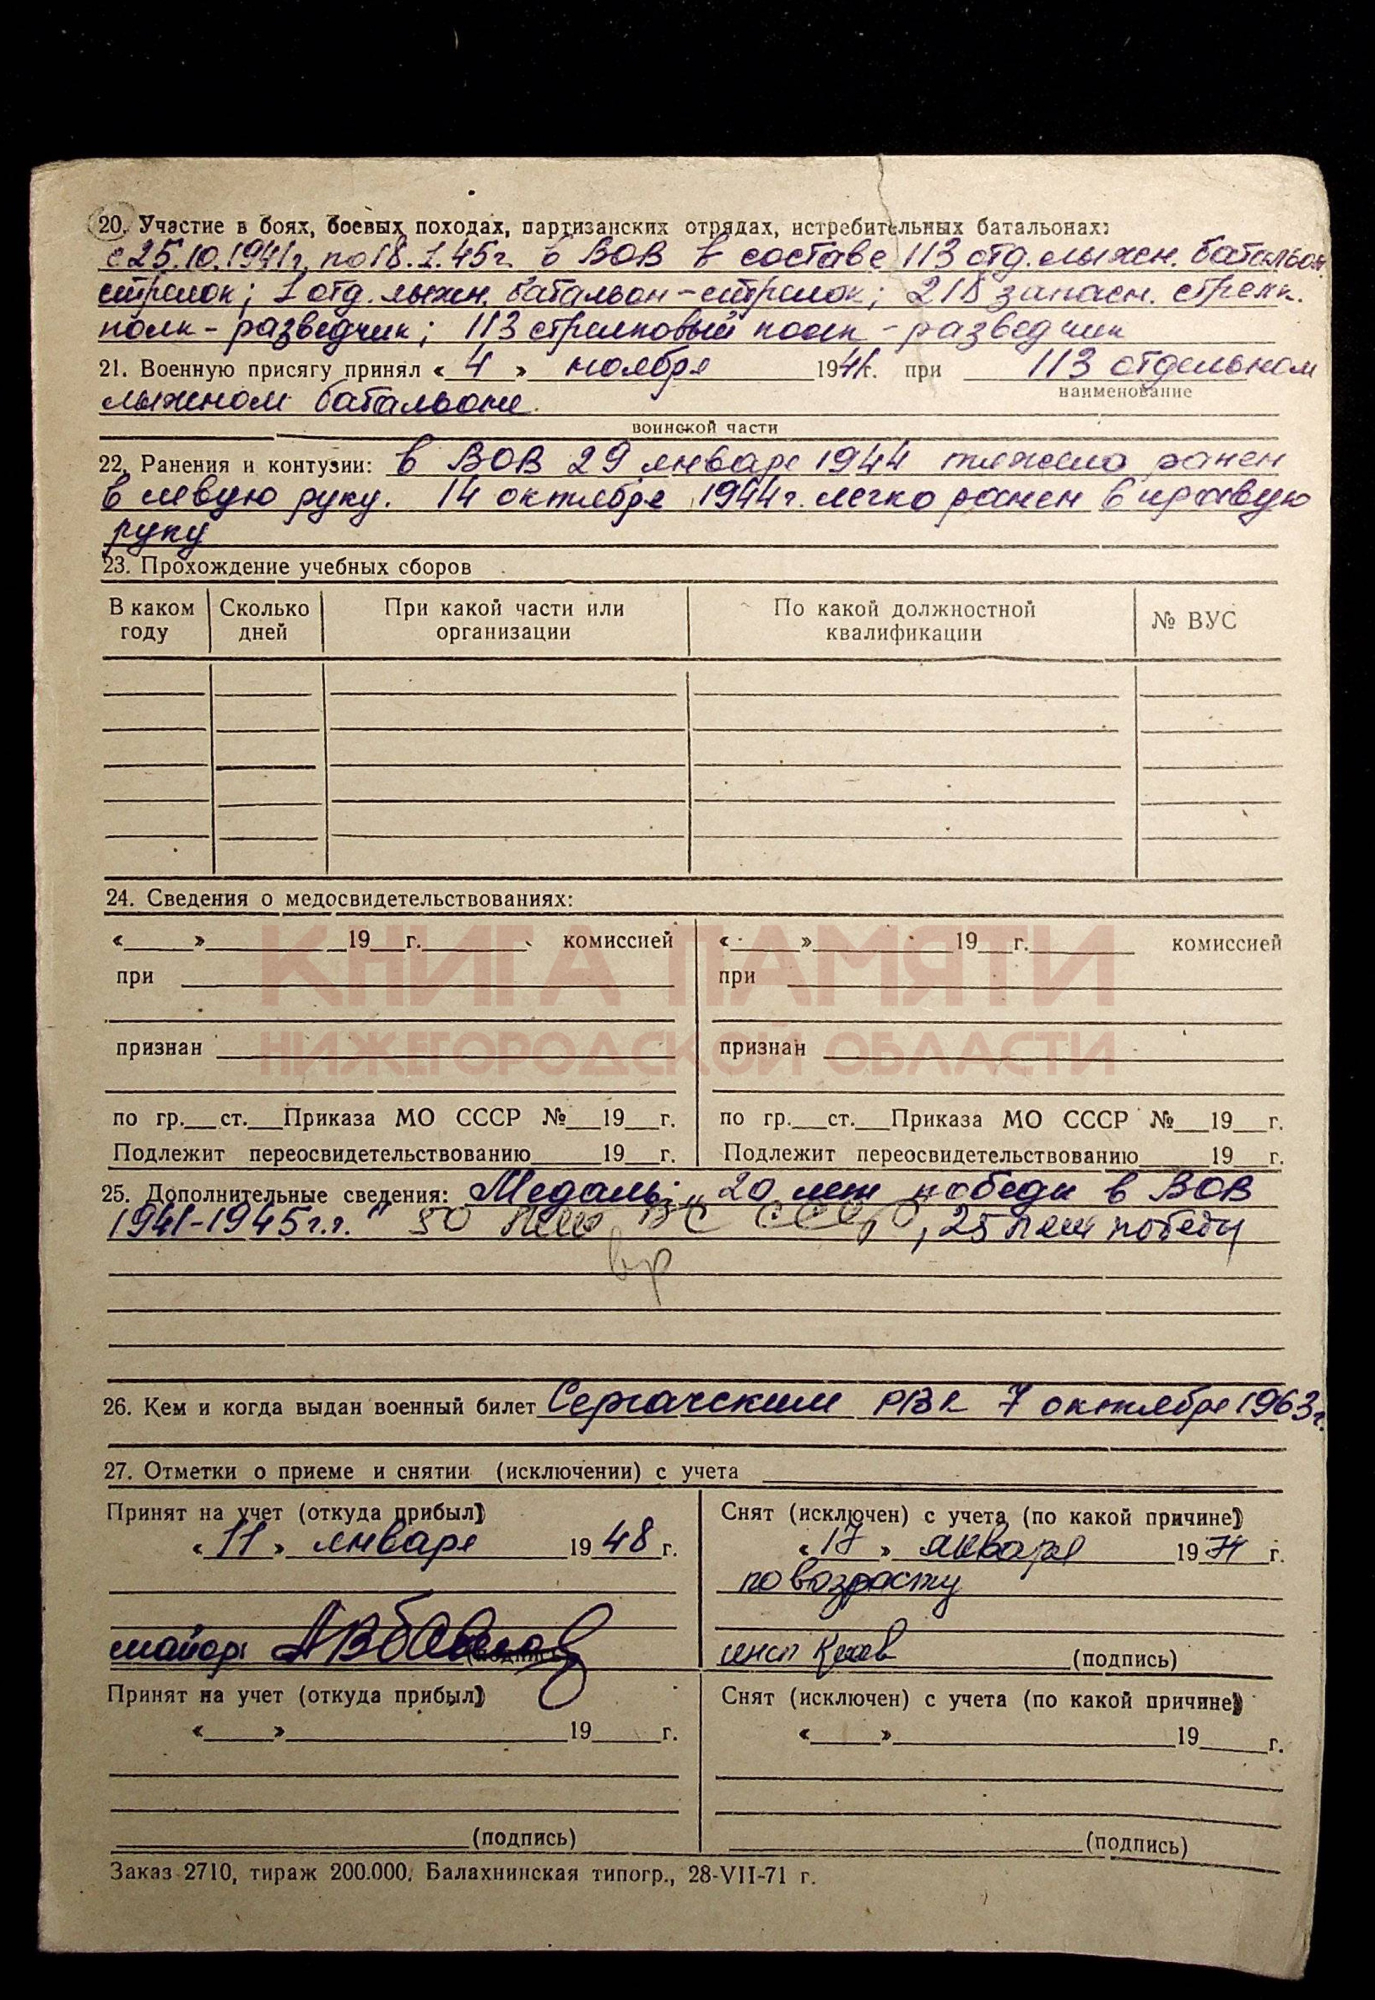 20. Участие в боях, боевых походах, партизанских отрядах, истребительных батальонах:
с 25.10.1941г. по 18.1.45г. в ВОВ в составе 113 отд. лыжн. батальон
стрелок; 1 отд. лыжн. батальон - стрелок; 218 запасн. стрелк.
полк - разведчик; 113 стрелковый полк - разведчик
21. Военную присягу принял « 4 » ноября 1941г. при 113 отдельном
наименование
лыжном батальоне
воинской части
22. Ранения и контузии: в ВОВ 29 января 1944 тяжело ранен
в левую руку. 14 октября 1944г. легко ранен в правую
руку
23. Прохождение учебных сборов
В каком году Сколько дней При какой части или организации По какой должностной квалификации № ВУС
24. Сведения о медосвидетельствованиях:
«____»________19__г.______ комиссией «____»________19__г.______ комиссией
при при
КНИГА ПАМЯТИ
НИЖЕГОРОДСКОЙ ОБЛАСТИ
признан признан
по гр.__ст.__Приказа МО СССР №__19__г. по гр.__ст.__Приказа МО СССР №__19__г.
Подлежит переосвидетельствованию____19__г. Подлежит переосвидетельствованию____19__г.
25. Дополнительные сведения: Медаль: „20 лет победы в ВОВ
1941-1945г.г." 50 лет ВС СССР, 25 лет победы
26. Кем и когда выдан военный билет Сергачским РВК 7 октября 1963г.
27. Отметки о приеме и снятии (исключении) с учета
Принят на учет (откуда прибыл) Снят (исключен) с учета (по какой причине)
« 11 » января 1948 г. « 17 » января 1974 г.
по возрасту
майор (подпись) инсп (подпись)
Принят на учет (откуда прибыл) Снят (исключен) с учета (по какой причине)
«____»________19____г. «____»________19____г.
(подпись) (подпись)
Заказ 2710, тираж 200.000. Балахнинская типогр., 28-VII-71 г.